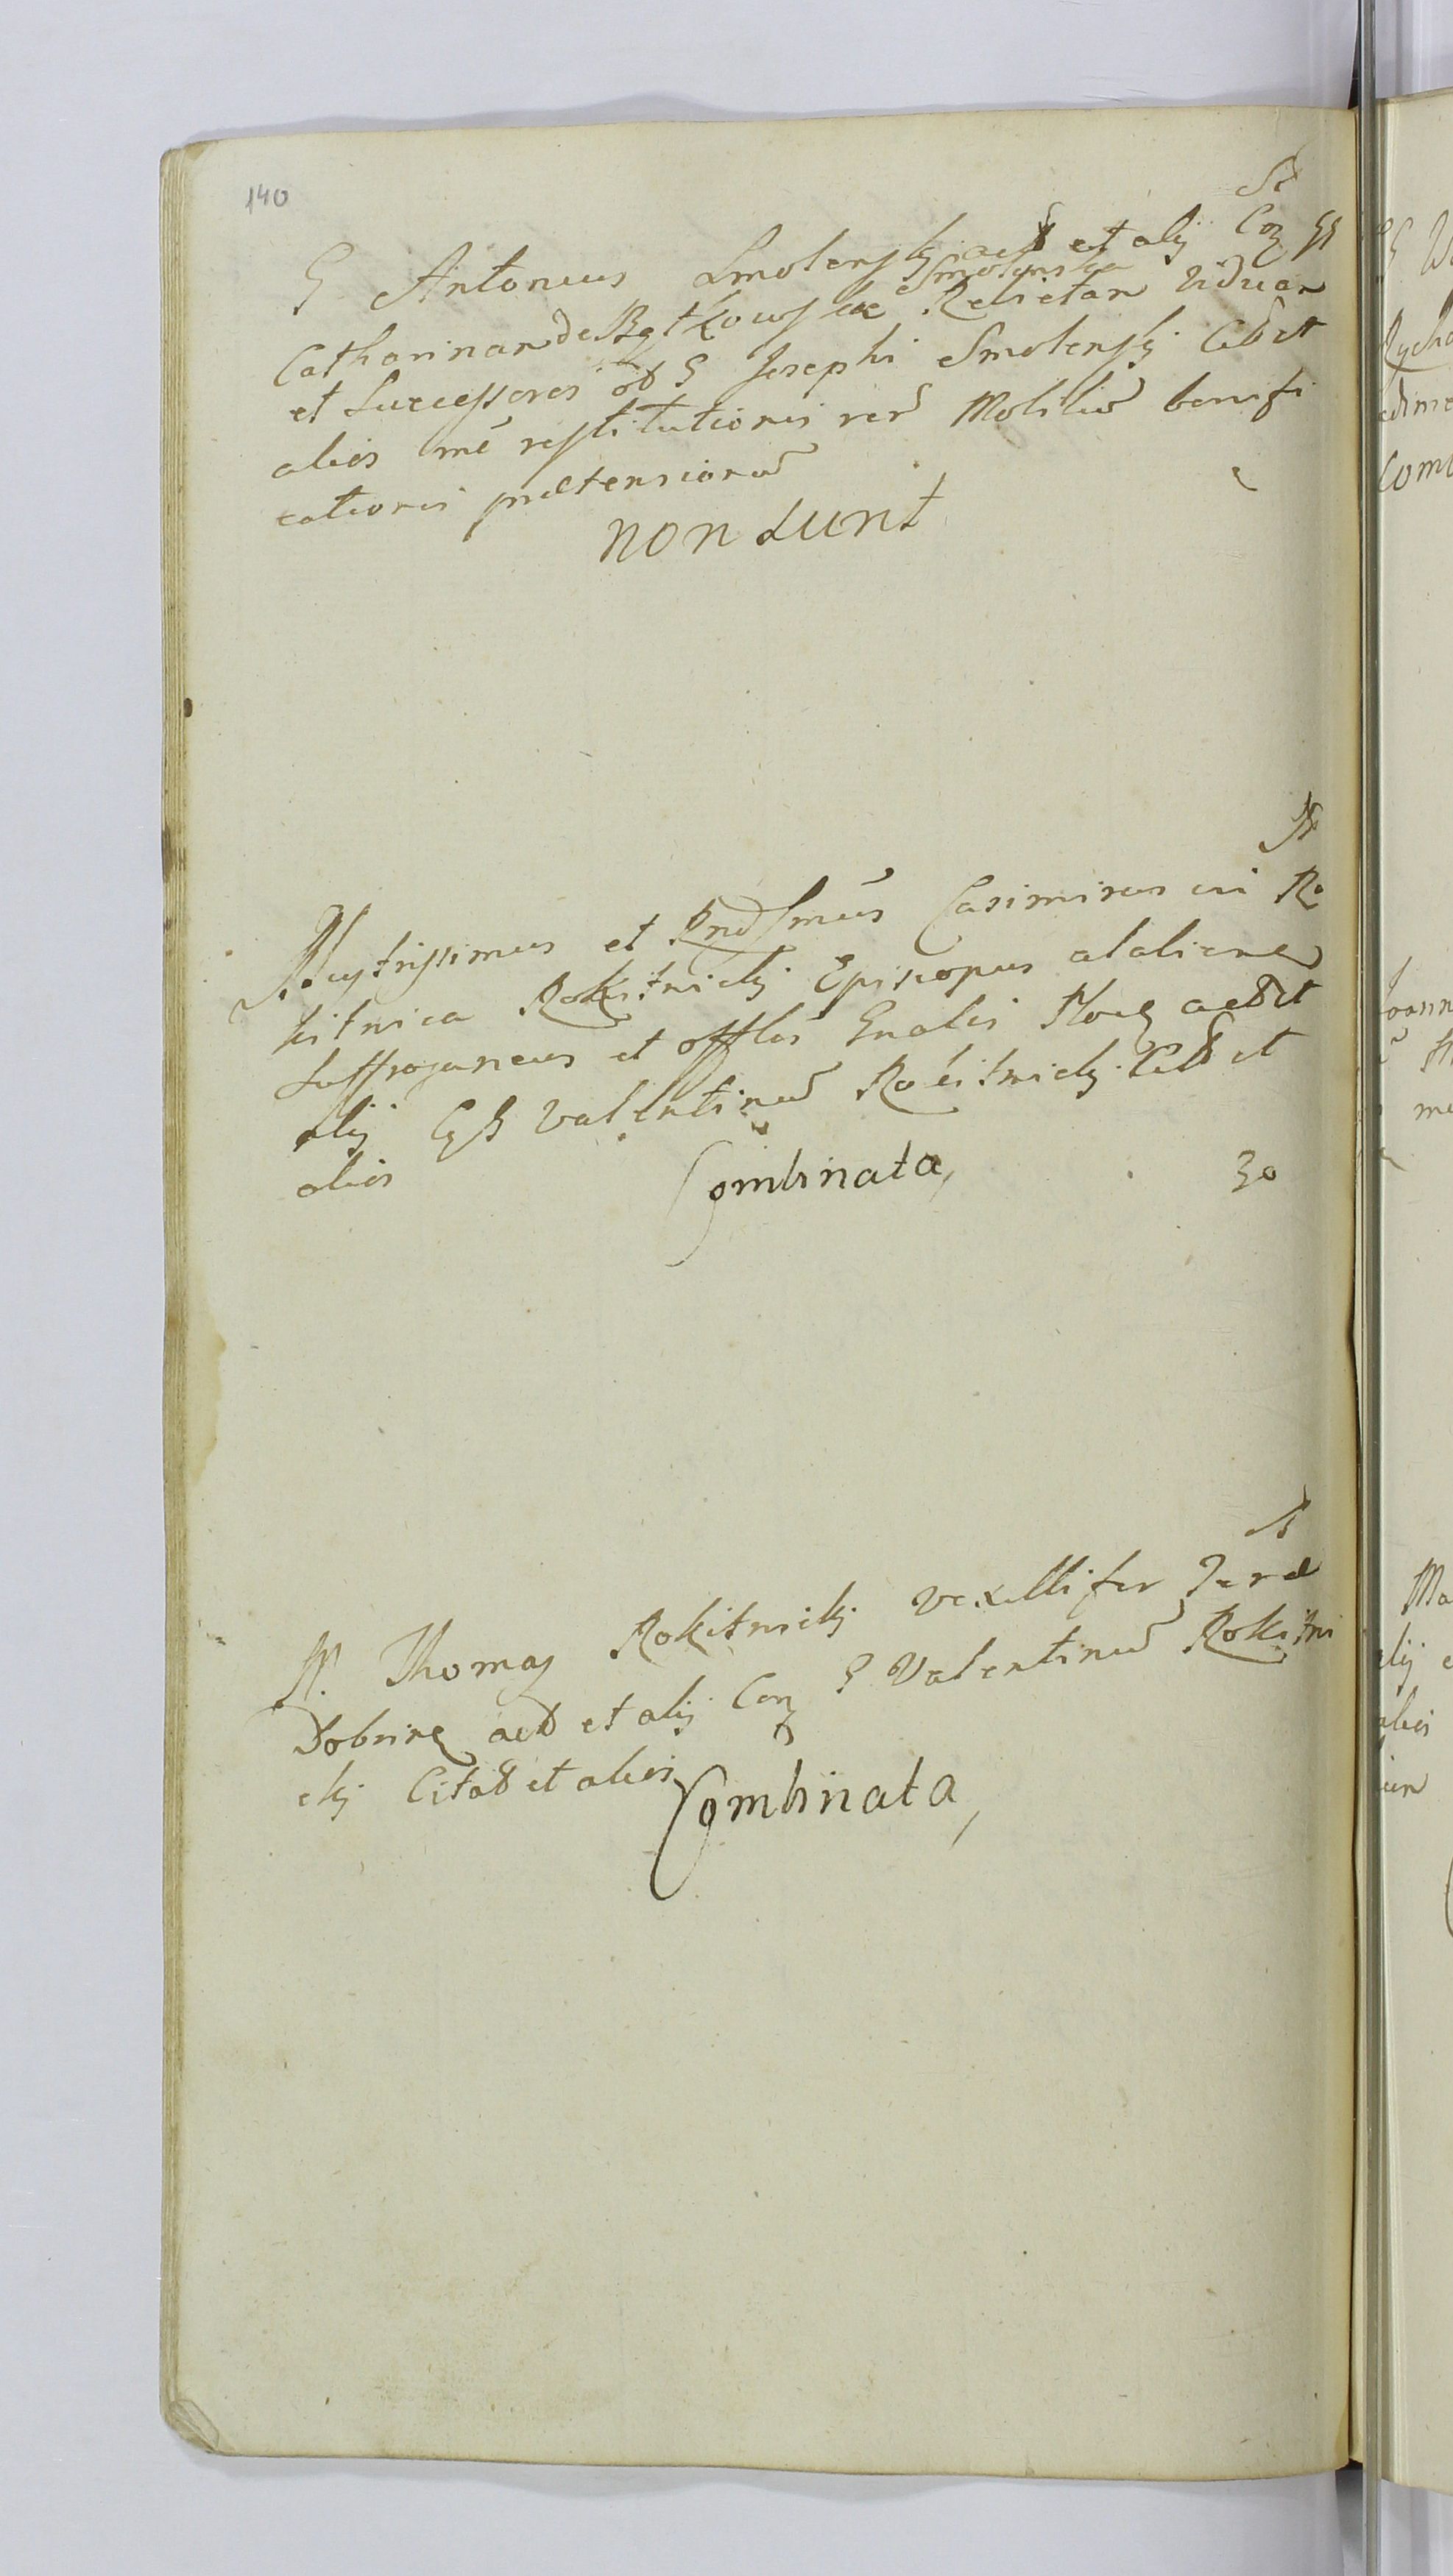 140
G Antonius Smolensky act et alij Con GG
Smolenska
Catharinam de Bętkowskie Relictam Viduam
et Successores ol G Josephi Smolensky Citt et
alios me restitutionis rerũ Mobiliũ bonifi
cationis prætensionũ
non sunt
Illustrissimus et Rndssmus Casimirus in Ro
kitnica Rokitnicky Episcopus alaliens
Suffraganeus et offlis Gnalis Ploc act et
alij C G Valentinũ Rokitnicky Citt et
alios
Combinata,
30
M. Thomas Rokitnicky Vexillifer Terræ
Dobrine act et alij Con G Valentinũ Rokitni
cky Citat et alios
Combinata,